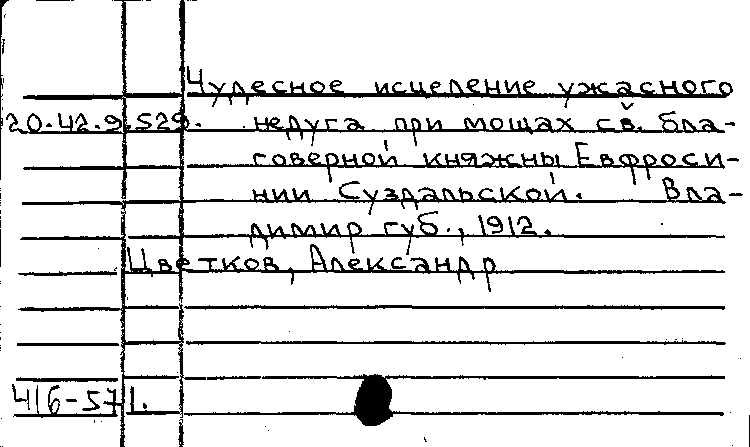 Чудесное исцеление ужасного
20.42.9.529. недуга, при мощах св. бла-
говерной княжны Евфроси-
нии Суздальской. Вла-
димир губ., 1912.
Цветков, Александр
416-571.